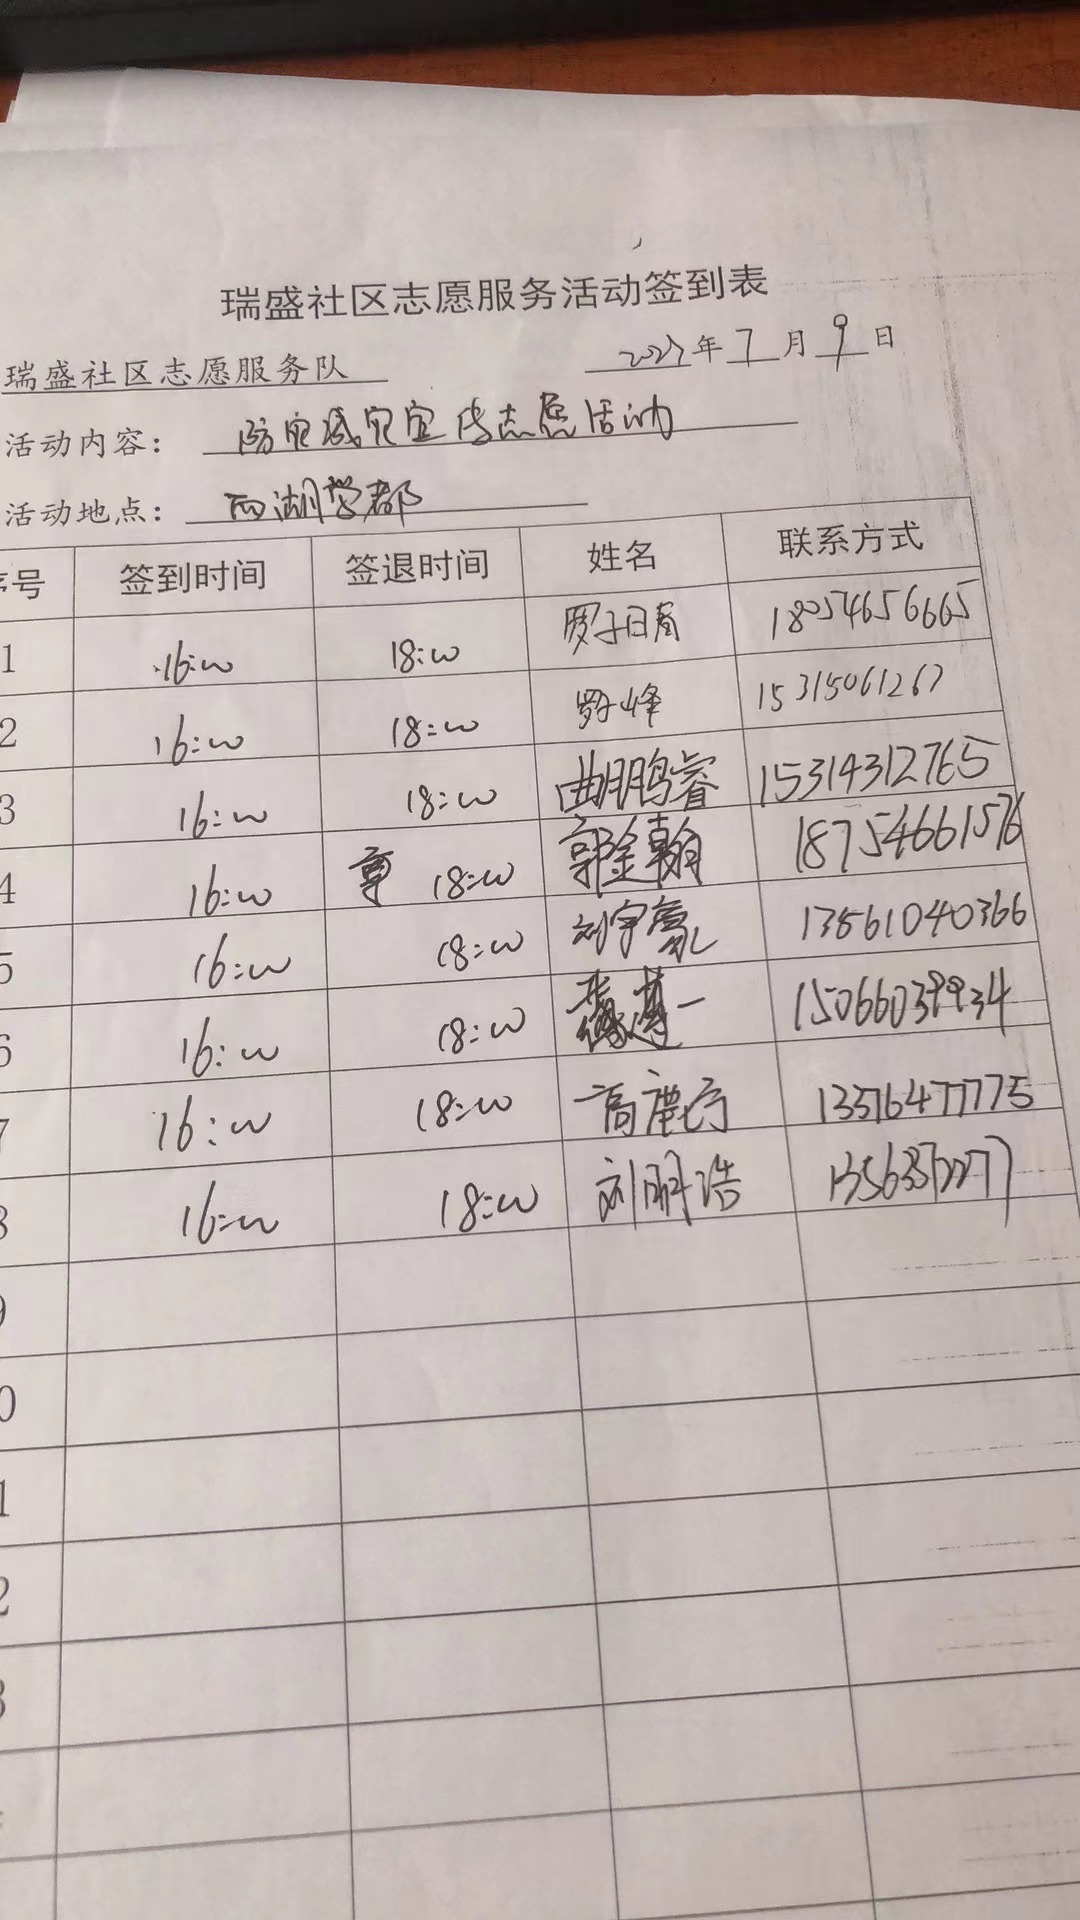 瑞盛社区志愿服务活动签到表
瑞盛社区志愿服务队 年 7 月 9 日
活动内容： 防灾减灾宣传志愿活动
活动地点： 西湖学都
序号 签到时间 签退时间 姓名 联系方式
1 16:00 18:00 18054656665
2 16:00 18:00 罗峰 15315061267
3 16:00 18:00 曲鹏睿 15314312765
4 16:00 18:00 郭金翰 18754661576
5 16:00 18:00 刘宇 13561040366
6 16:00 18:00 15066039934
7 16:00 18:00 高 13376477775
8 16:00 18:00 刘明浩
9
0
1
2
3